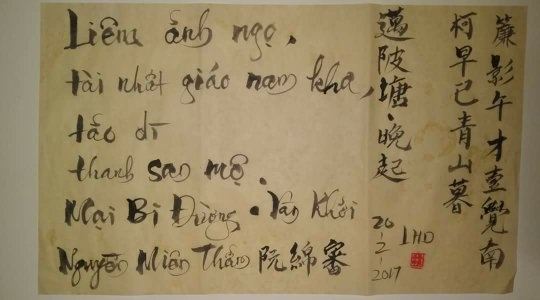 Liêm ảnh ngọ,
tài nhất giáo nam kha,
tảo dĩ
thanh san mộ.
Mại Bì Đường . Vãn Khởi
Nguyễn Miên Thẩm 阮綿審
簾影午才壹覺南
柯早已青山暮
邁陂塘·晚起
20-2-2017
LHD